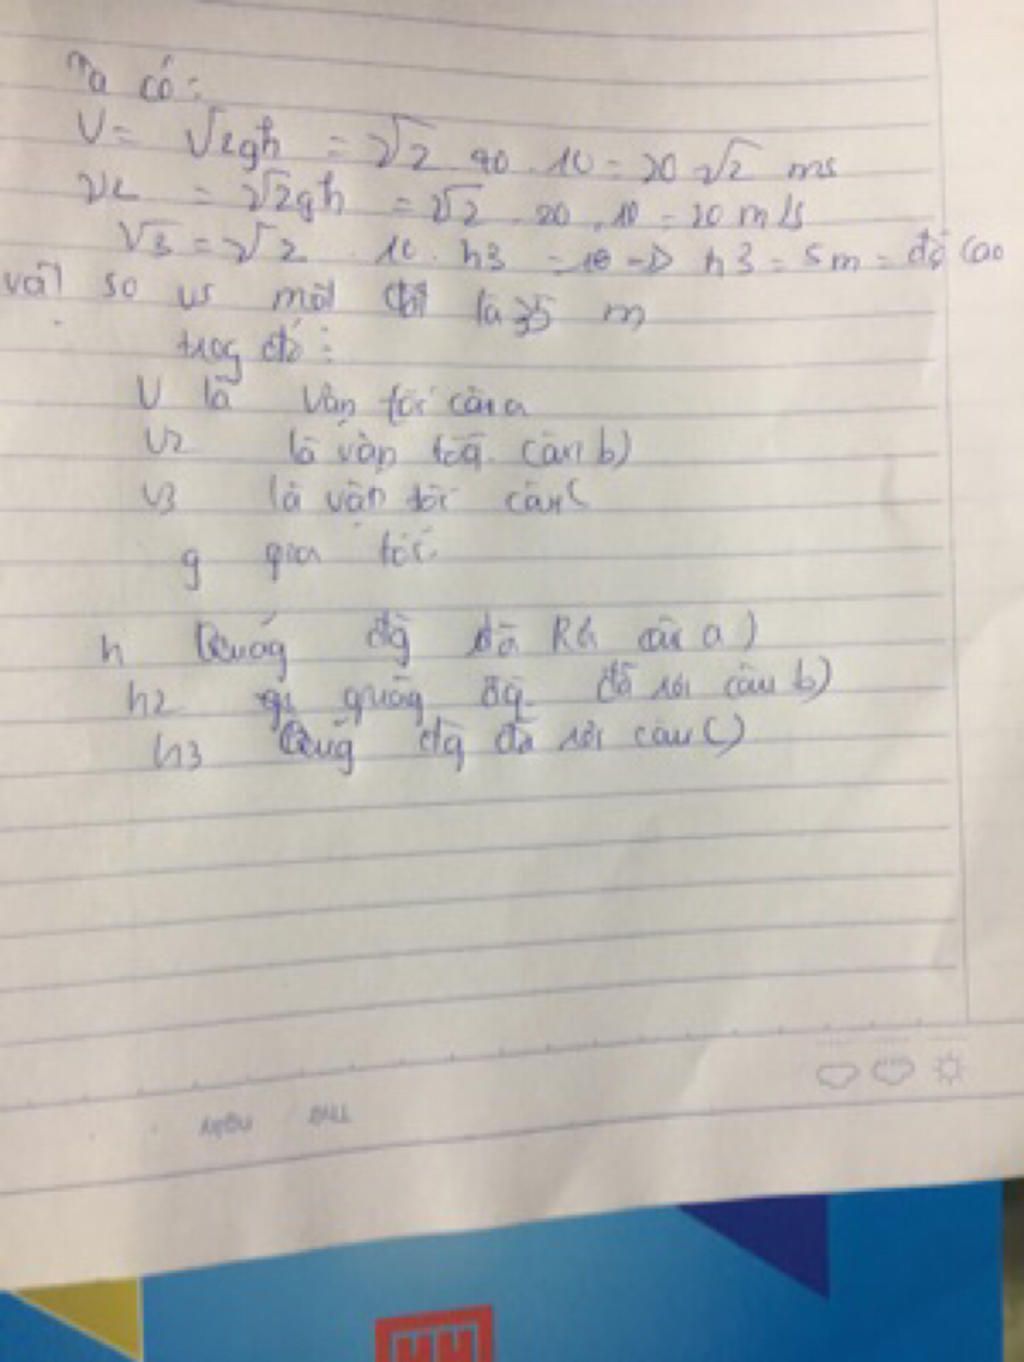 Ta có:
V = √2gh = √2 40 . 10 = 20 √2 ms
V2 = √2gh = √2 . 20 . 10 = 20 m/s
√3 = √2 . 10 . h3 = 10 -> h3 = 5m = độ cao
vật so vs mặt đất là 35 m
trog đó:
V là vận tốc câu a
V2 là vận tốc câu b)
V3 là vận tốc câu c
g gia tốc
h Quág đg đã câu a)
h2 quág đg đã rơi câu b)
h3 Quãg đg đã rơi câu c)
Ngày Thứ
HH